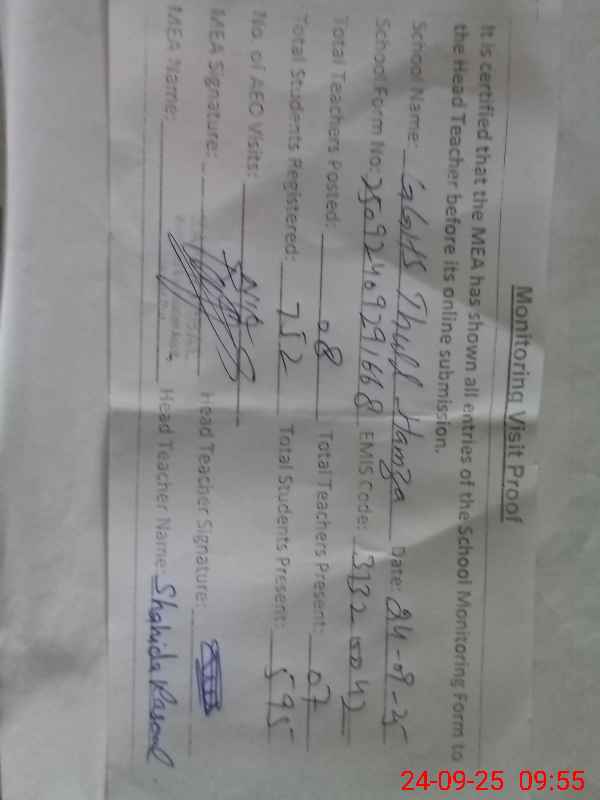 Monitoring Visit Proof
It is certified that the MEA has shown all entries of the School Monitoring Form to
the Head Teacher before its online submission.
School Name: GGHS Thull Hamza Date: 24-09-25
School Form No: 25092409291668 EMIS Code: 31320042
Total Teachers Posted: 08 Total Teachers Present: 07
Total Students Registered: 752 Total Students Present: 595
No. of AEO Visits:
MEA Signature: Head Teacher Signature:
MEA Name: Head Teacher Name: Shahida Rasool
24-09-25 09:55